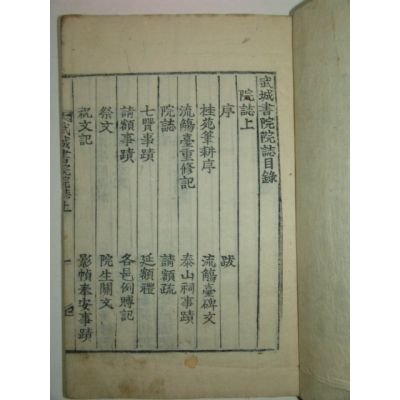 武城書院院誌目錄
院誌上
序　跋
桂苑筆耕序　流觴臺碑文
流觴臺重修記　泰山祠事蹟
院誌　請額疏
七賢事蹟　延額禮
請額事蹟　各邑例賻記
祭文　院生關文
祝文記　影幀奉安事蹟
武城書院院誌上　一